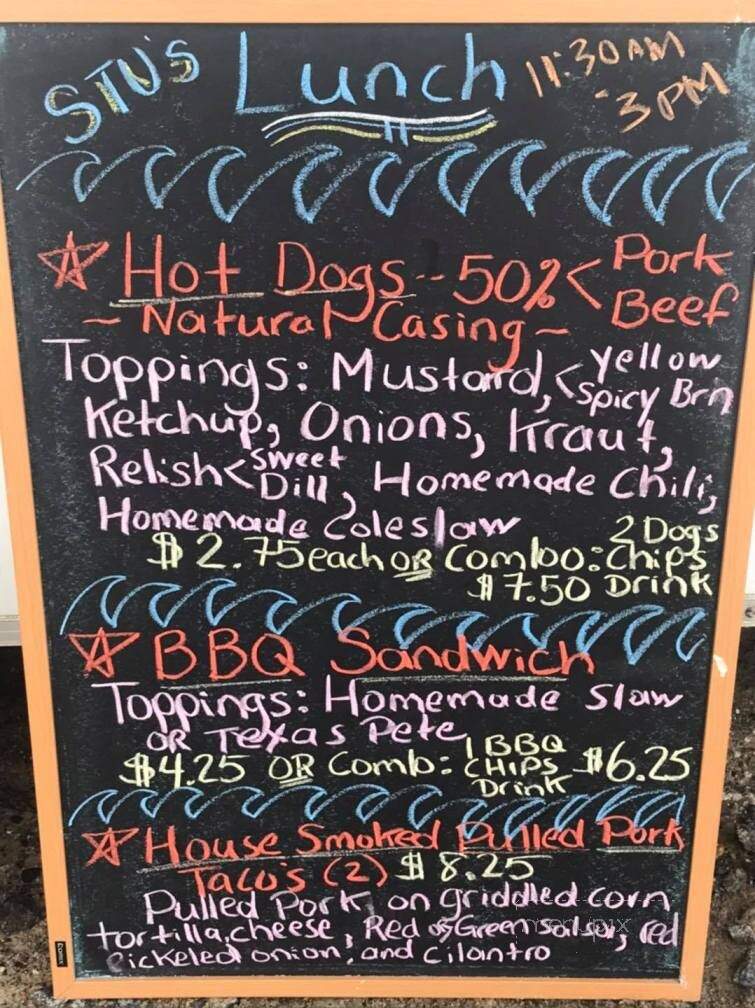 STU'S Lunch 11:30AM
-3PM
Hot Dogs -- 50% < Pork
Beef
~ Natural Casing ~
Toppings: Mustard, < Yellow
Spicy Brn
Ketchup, Onions, Kraut,
Relish < Sweet
Dill, Homemade Chili,
Homemade Coleslaw
$2.75 each OR Combo: 2 Dogs
Chips
$7.50 Drink
BBQ Sandwich
Toppings: Homemade Slaw
OR Texas Pete
$4.25 OR Comb: 1 BBQ
CHIPS $6.25
Drink
House Smoked Pulled Pork
Taco's (2) $8.25
Pulled Pork on griddled corn
tortilla, cheese, Red or Green salsa, red
Pickeled onion, and cilantro
menupix